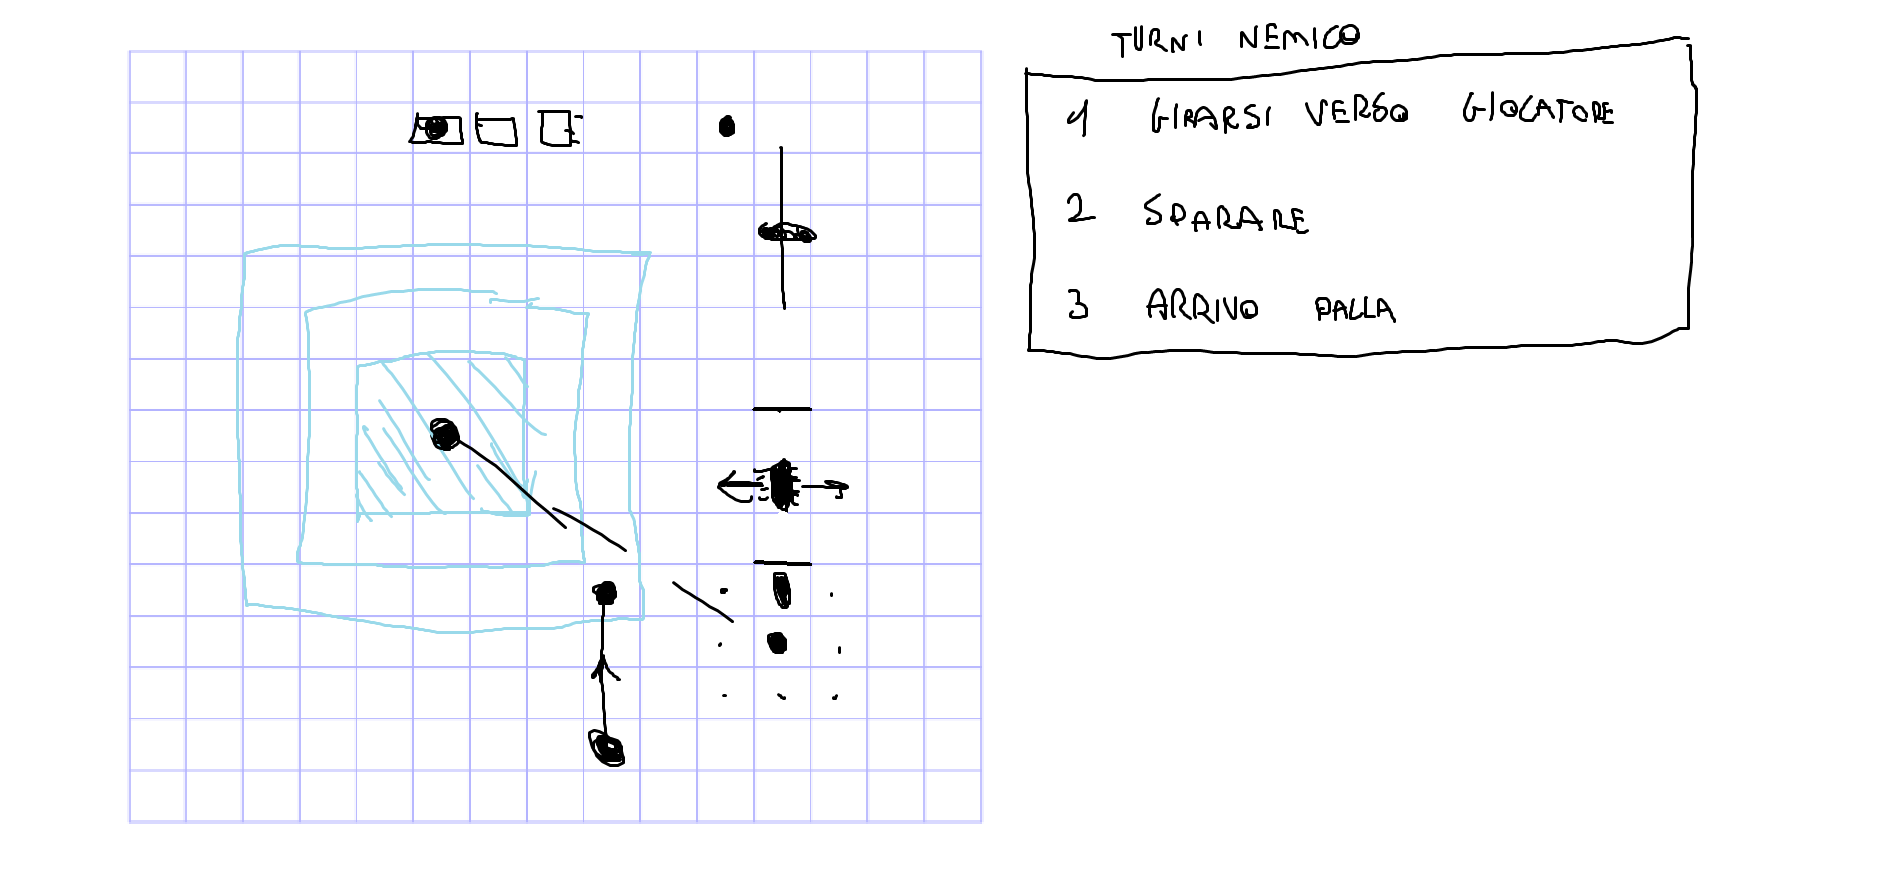 TURNI NEMICO
1 GIRARSI VERSO GIOCATORE
2 SPARARE
3 ARRIVO PALLA